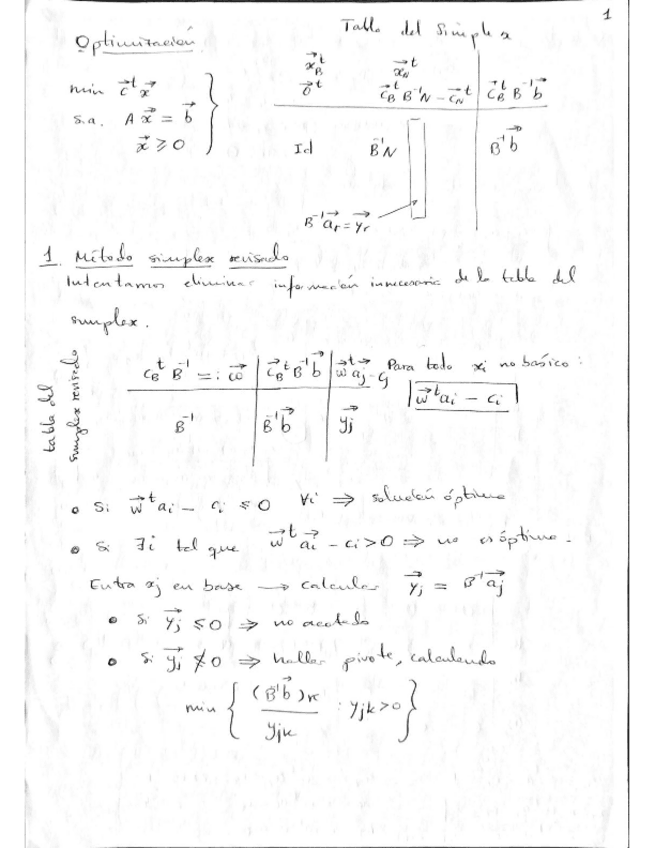 1
Optimización
Tabla del Simplex
min c⃗ᵗ x⃗
s.a. A x⃗ = b⃗
x⃗ ⩾ 0
x⃗_Bᵗ x⃗_Nᵗ
0⃗ᵗ c⃗_Bᵗ B⁻¹N − c⃗_Nᵗ | c⃗_Bᵗ B⁻¹b⃗
Id B⁻¹N | B⁻¹b⃗
B⁻¹a⃗_r = y⃗_r
1. Método simplex revisado
Intentamos eliminar información innecesaria de la tabla del
simplex.
tabla del
simplex revisado
c_Bᵗ B⁻¹ =: w⃗ | c⃗_Bᵗ B⁻¹b⃗ | w⃗ᵗa⃗_j − c_j Para todo x_i no básico:
w⃗ᵗa_i − c_i
B⁻¹ | B⁻¹b⃗ | y⃗_j
Si w⃗ᵗa_i − c_i ⩽ 0 ∀i ⇒ solución óptima
Si ∃i tal que w⃗ᵗ a⃗_i − c_i > 0 ⇒ no es óptimo.
Entra x_j en base ⟶ calcular y⃗_j = B⁻¹a⃗_j
Si y⃗_j ⩽ 0 ⇒ no acotado
Si y⃗_j ≰ 0 ⇒ hallar pivote, calculando
min { (B⁻¹b⃗)_k / y_jk : y_jk > 0 }